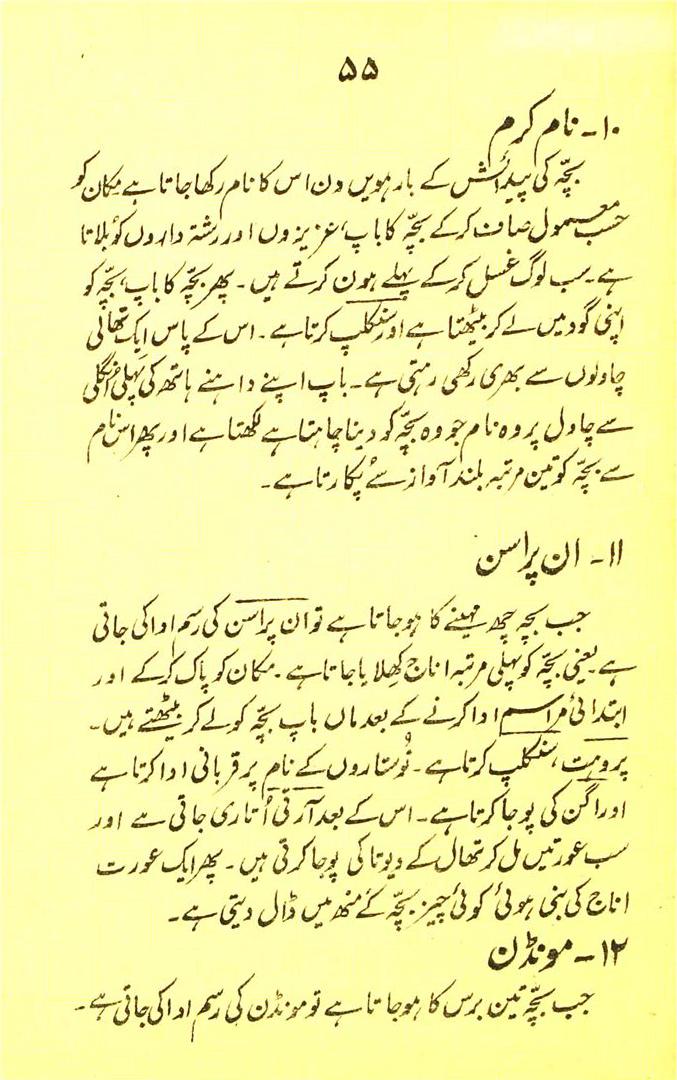 ۵۵
۱۰۔ نام کرم
بچّہ کی پیدائش کے بارہویں دن اس کا نام رکھا جاتا ہے مکان کو
حسب معمول صاف کرکے بچّہ کا باپ، عزیزوں اور رشتہ داروں کو بلاتا
ہے۔ سب لوگ غسل کرکے پہلے ہون کرتے ہیں۔ پھر بچّہ کا باپ، بچّہ کو
اپنی گود میں لے کر بیٹھتا ہے اور سنکلپ کرتا ہے۔ اس کے پاس ایک تھالی
چاولوں سے بھری رکھی رہتی ہے۔ باپ اپنے داہنے ہاتھ کی پہلی انگلی
سے چاول پر وہ نام جو وہ بچّہ کو دینا چاہتا ہے لکھتا ہے اور پھر اس نام
سے بچّہ کو تین مرتبہ بلند آواز سے پُکارتا ہے۔
۱۱۔ ان پراسن
جب بچہ چھ مہینے کا ہو جاتا ہے تو ان پراسن کی رسم ادا کی جاتی
ہے۔ یعنی بچّہ کو پہلی مرتبہ اناج کھلایا جاتا ہے۔ مکان کو پاک کرکے اور
ابتدائی مراسم ادا کرنے کے بعد ماں باپ بچّہ کو لے کر بیٹھتے ہیں۔
پروہت، سنکلپ کرتا ہے۔ نَو ستاروں کے نام پر قربانی ادا کرتا ہے
اور اگن کی پوجا کرتا ہے۔ اس کے بعد آرتی اُتاری جاتی ہے اور
سب عورتیں مل کر تھال کے دیوتا کی پوجا کرتی ہیں۔ پھر ایک عورت
اناج کی بنی ہوئی کوئی چیز بچّہ کے منھ میں ڈال دیتی ہے۔
۱۲۔ مونڈن
جب بچّہ تین برس کا ہو جاتا ہے تو مونڈن کی رسم ادا کی جاتی ہے۔